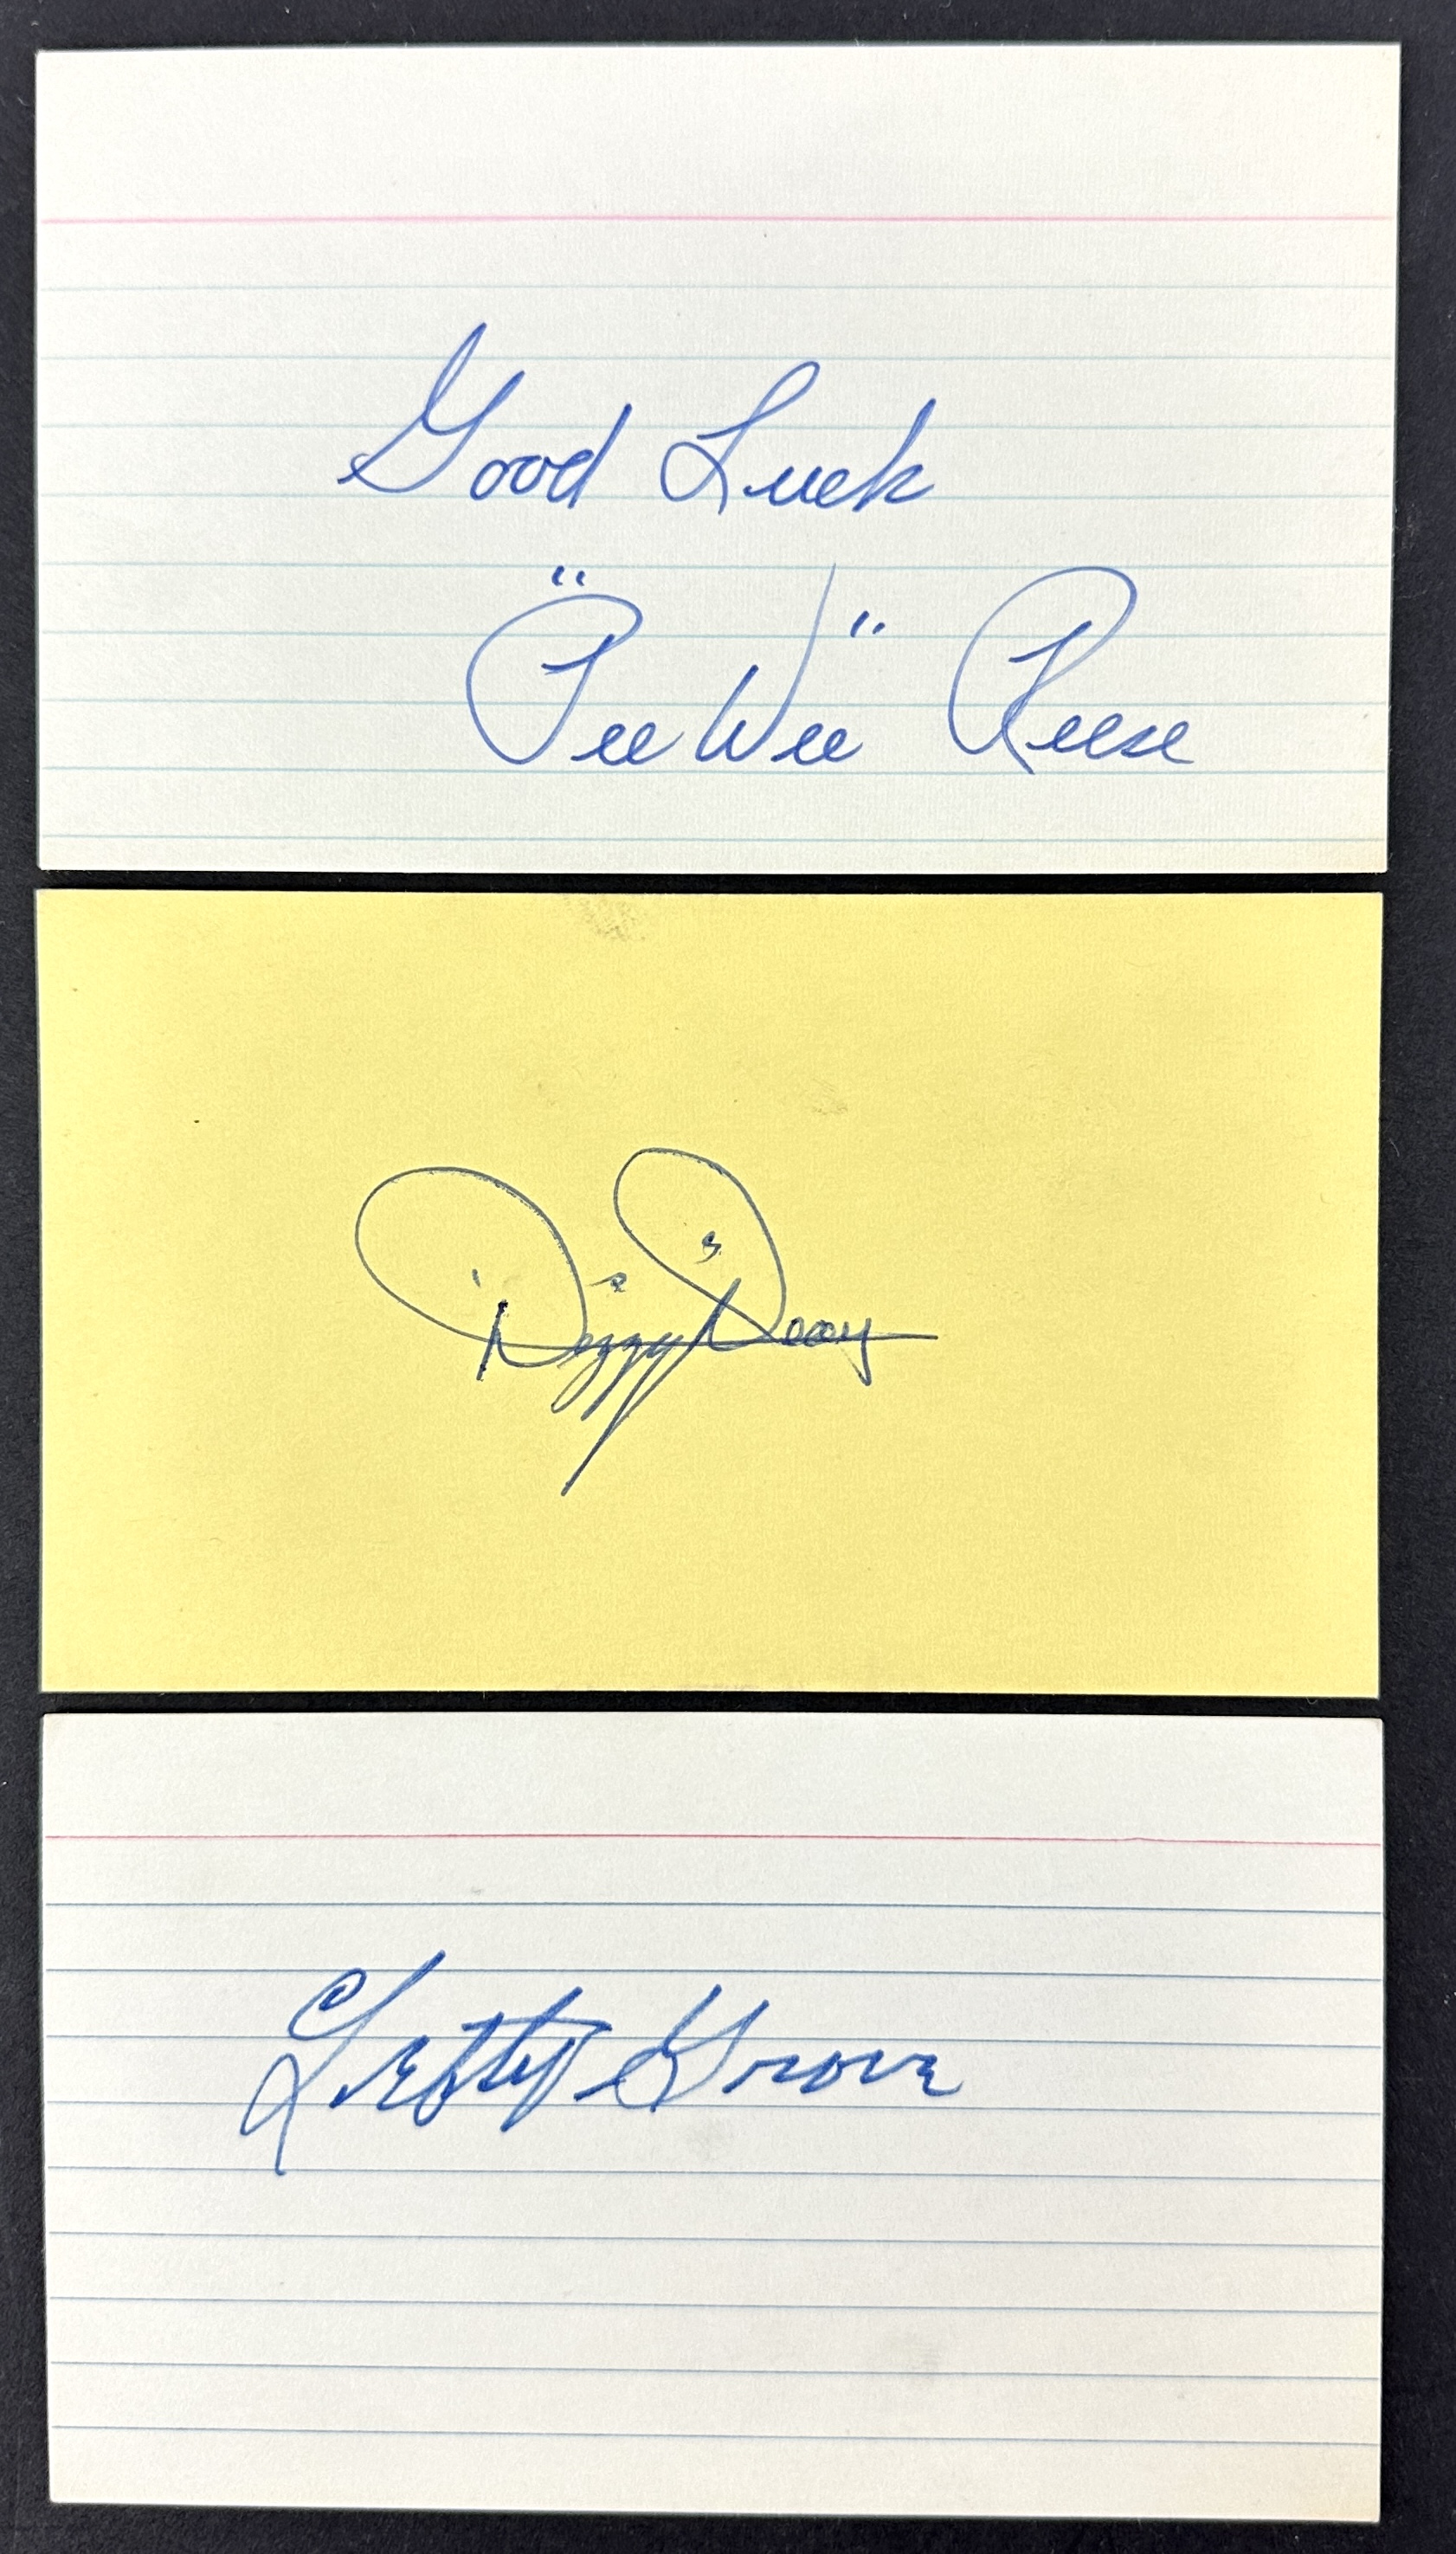 Good Luck
"Pee Wee" Reese
Dizzy Dean
Lefty Grove